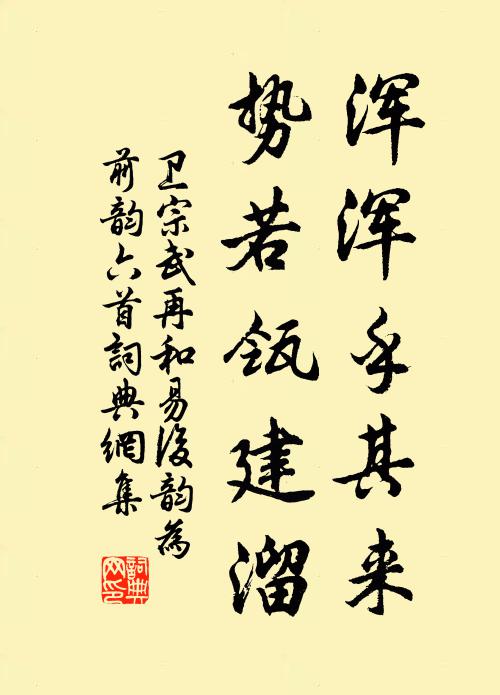 浑浑乎其来
势若瓴建溜
卫宗武再和易后韵为
前韵六首詞典網集
詞典
网印